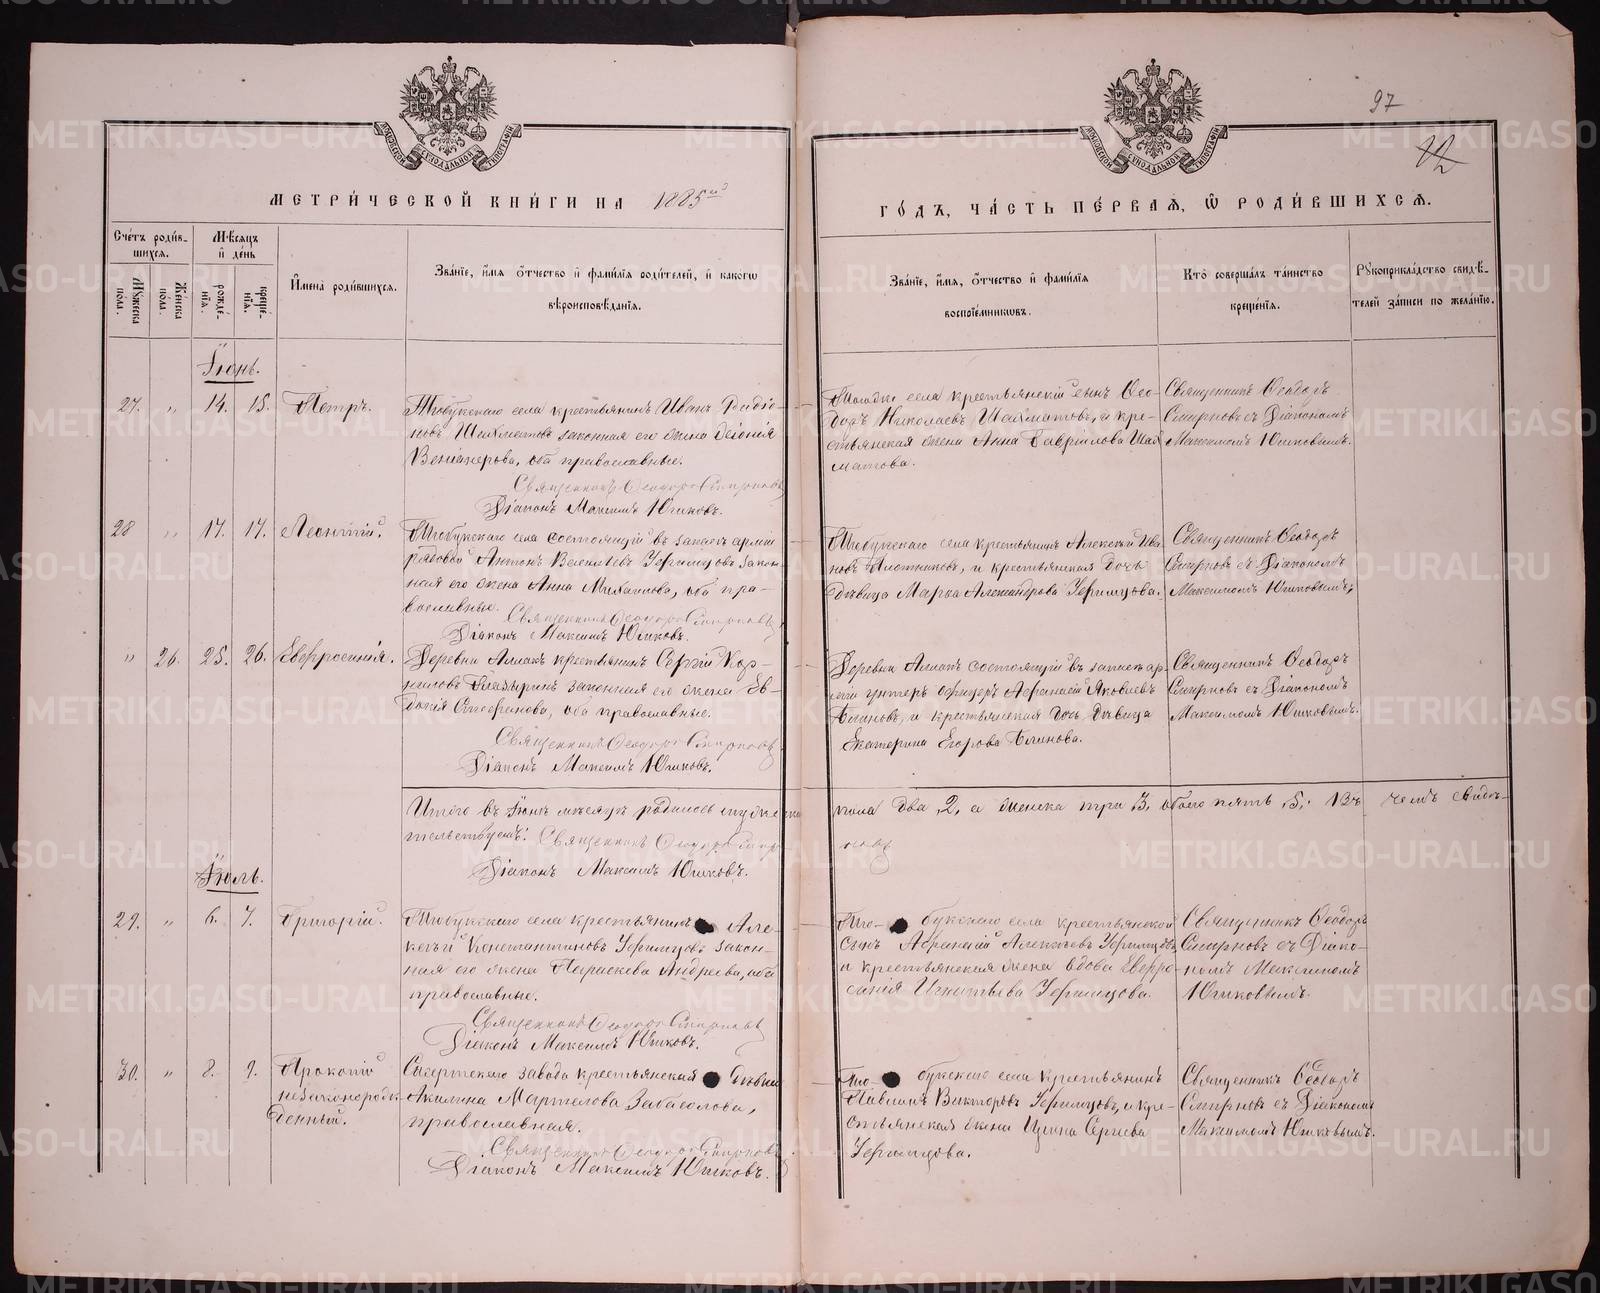 97
12
МЕТРИ́ЧЕСКОЙ КНИ́ГИ НА 1885й
ГО́ДЪ, ЧА́СТЬ ПЕ́РВАЯ, Ѡ РОДИ́ВШИХСЯ.
Сче́тъ роди́в-
шихся.
Мѣ́сяцъ
и де́нь
Му́жеска по́ла.
Же́нска по́ла.
рожде́-
нїя.
креще́-
нїя.
И҆мена̀ роди́вшихся.
Зва́нїе, и҆́мя ѻ҆́тчество и҆ фами́лїя роди́телей, и҆ како́гѡ
вѣроисповѣ́данїя.
Зва́нїе, и҆́мя, ѻ҆́тчество и҆ фами́лїя
воспрїе́мникѡвъ.
Кто̀ соверша́лъ та́инство
креще́нїя.
Рꙋкоприкла́дство свидѣ́-
телей за́писи по жела́нїю.
Іюнь.
27. „ 14. 15. Петръ.
Тюбукскаго села крестьянинъ Иванъ Родіо-
новъ Шахматовъ законная его жена
оба православные.
Священникъ Ѳеодоръ Смирновъ
Діаконъ Максимъ Юшковъ.
села крестьянскій сынъ Ѳео-
доръ Николаевъ Шахматовъ, и кре-
стьянская жена Анна Гавріилова Шах
матова.
Священникъ Ѳеодоръ
Смирновъ съ Діакономъ
Максимомъ Юшковымъ.
28 „ 17. 17. Леонтій.
Тюбукскаго села состоящій въ запасѣ арміи
рядовой Антонъ Васильевъ Уфимцовъ закон-
ная его жена Анна Михайлова, оба пра-
вославные.
Священникъ Ѳеодоръ Смирновъ
Діаконъ Максимъ Юшковъ.
Тюбукскаго села крестьянинъ Алексѣй Ива
новъ Плотниковъ, и крестьянская дочь
дѣвица Марѳа Александрова Уфимцова.
Священникъ Ѳеодоръ
Смирновъ съ Діакономъ
Максимомъ Юшковымъ,
„ 26. 25. 26. Евфросинія.
Деревни Аллакъ крестьянинъ Сергій Кор-
ниловъ Глазыринъ законная его жена Ев-
докія Стефанова, оба православные.
Священникъ Ѳеодоръ Смирновъ
Діаконъ Максимъ Юшковъ.
Деревни Аллакъ состоящій въ запасѣ ар-
міи унтеръ офицеръ Аѳанасій Яковлевъ
Блиновъ, и крестьянская дочь дѣвица
Екатерина Егорова Блинова.
Священникъ Ѳеодоръ
Смирновъ съ Діакономъ
Максимомъ Юшковымъ.
Итого въ Іюнѣ мѣсяцѣ родилось мужеска
пола два 2, а женска три 3, обоего пять 5. Въ чемъ свидѣ-
тельствуемъ: Священникъ Ѳеодоръ Смир
новъ
Діаконъ Максимъ Юшковъ.
Іюль.
29. „ 6. 7. Григорій.
Тюбукскаго села крестьянинъ Але
ксѣй Константиновъ Уфимцовъ закон-
ная его жена Параскева Андреева, оба
православные.
Священникъ Ѳеодоръ Смирновъ
Діаконъ Максимъ Юшковъ.
Тю- букскаго села крестьянской
сынъ Аѳанасій Алексѣевъ Уфимцовъ
и крестьянская жена вдова Евфро-
синія Игнатьева Уфимцова.
Священникъ Ѳеодоръ
Смирновъ съ Діако-
номъ Максимомъ
Юшковымъ.
30. „ 8. 9. Прокопій
незаконорож
денный.
Сысертскаго завода крестьянская дѣвица
Акилина Мартелова Забалова,
православная.
Священникъ Ѳеодоръ Смирновъ
Діаконъ Максимъ Юшковъ.
Тю- букскаго села крестьянинъ
Павлинъ Викторовъ Уфимцовъ, и кре-
стьянская жена Ирина Сергѣева
Уфимцова.
Священникъ Ѳеодоръ
Смирновъ съ Діакономъ
Максимомъ Юшковымъ.
METRIKI.GASO-URAL.RU